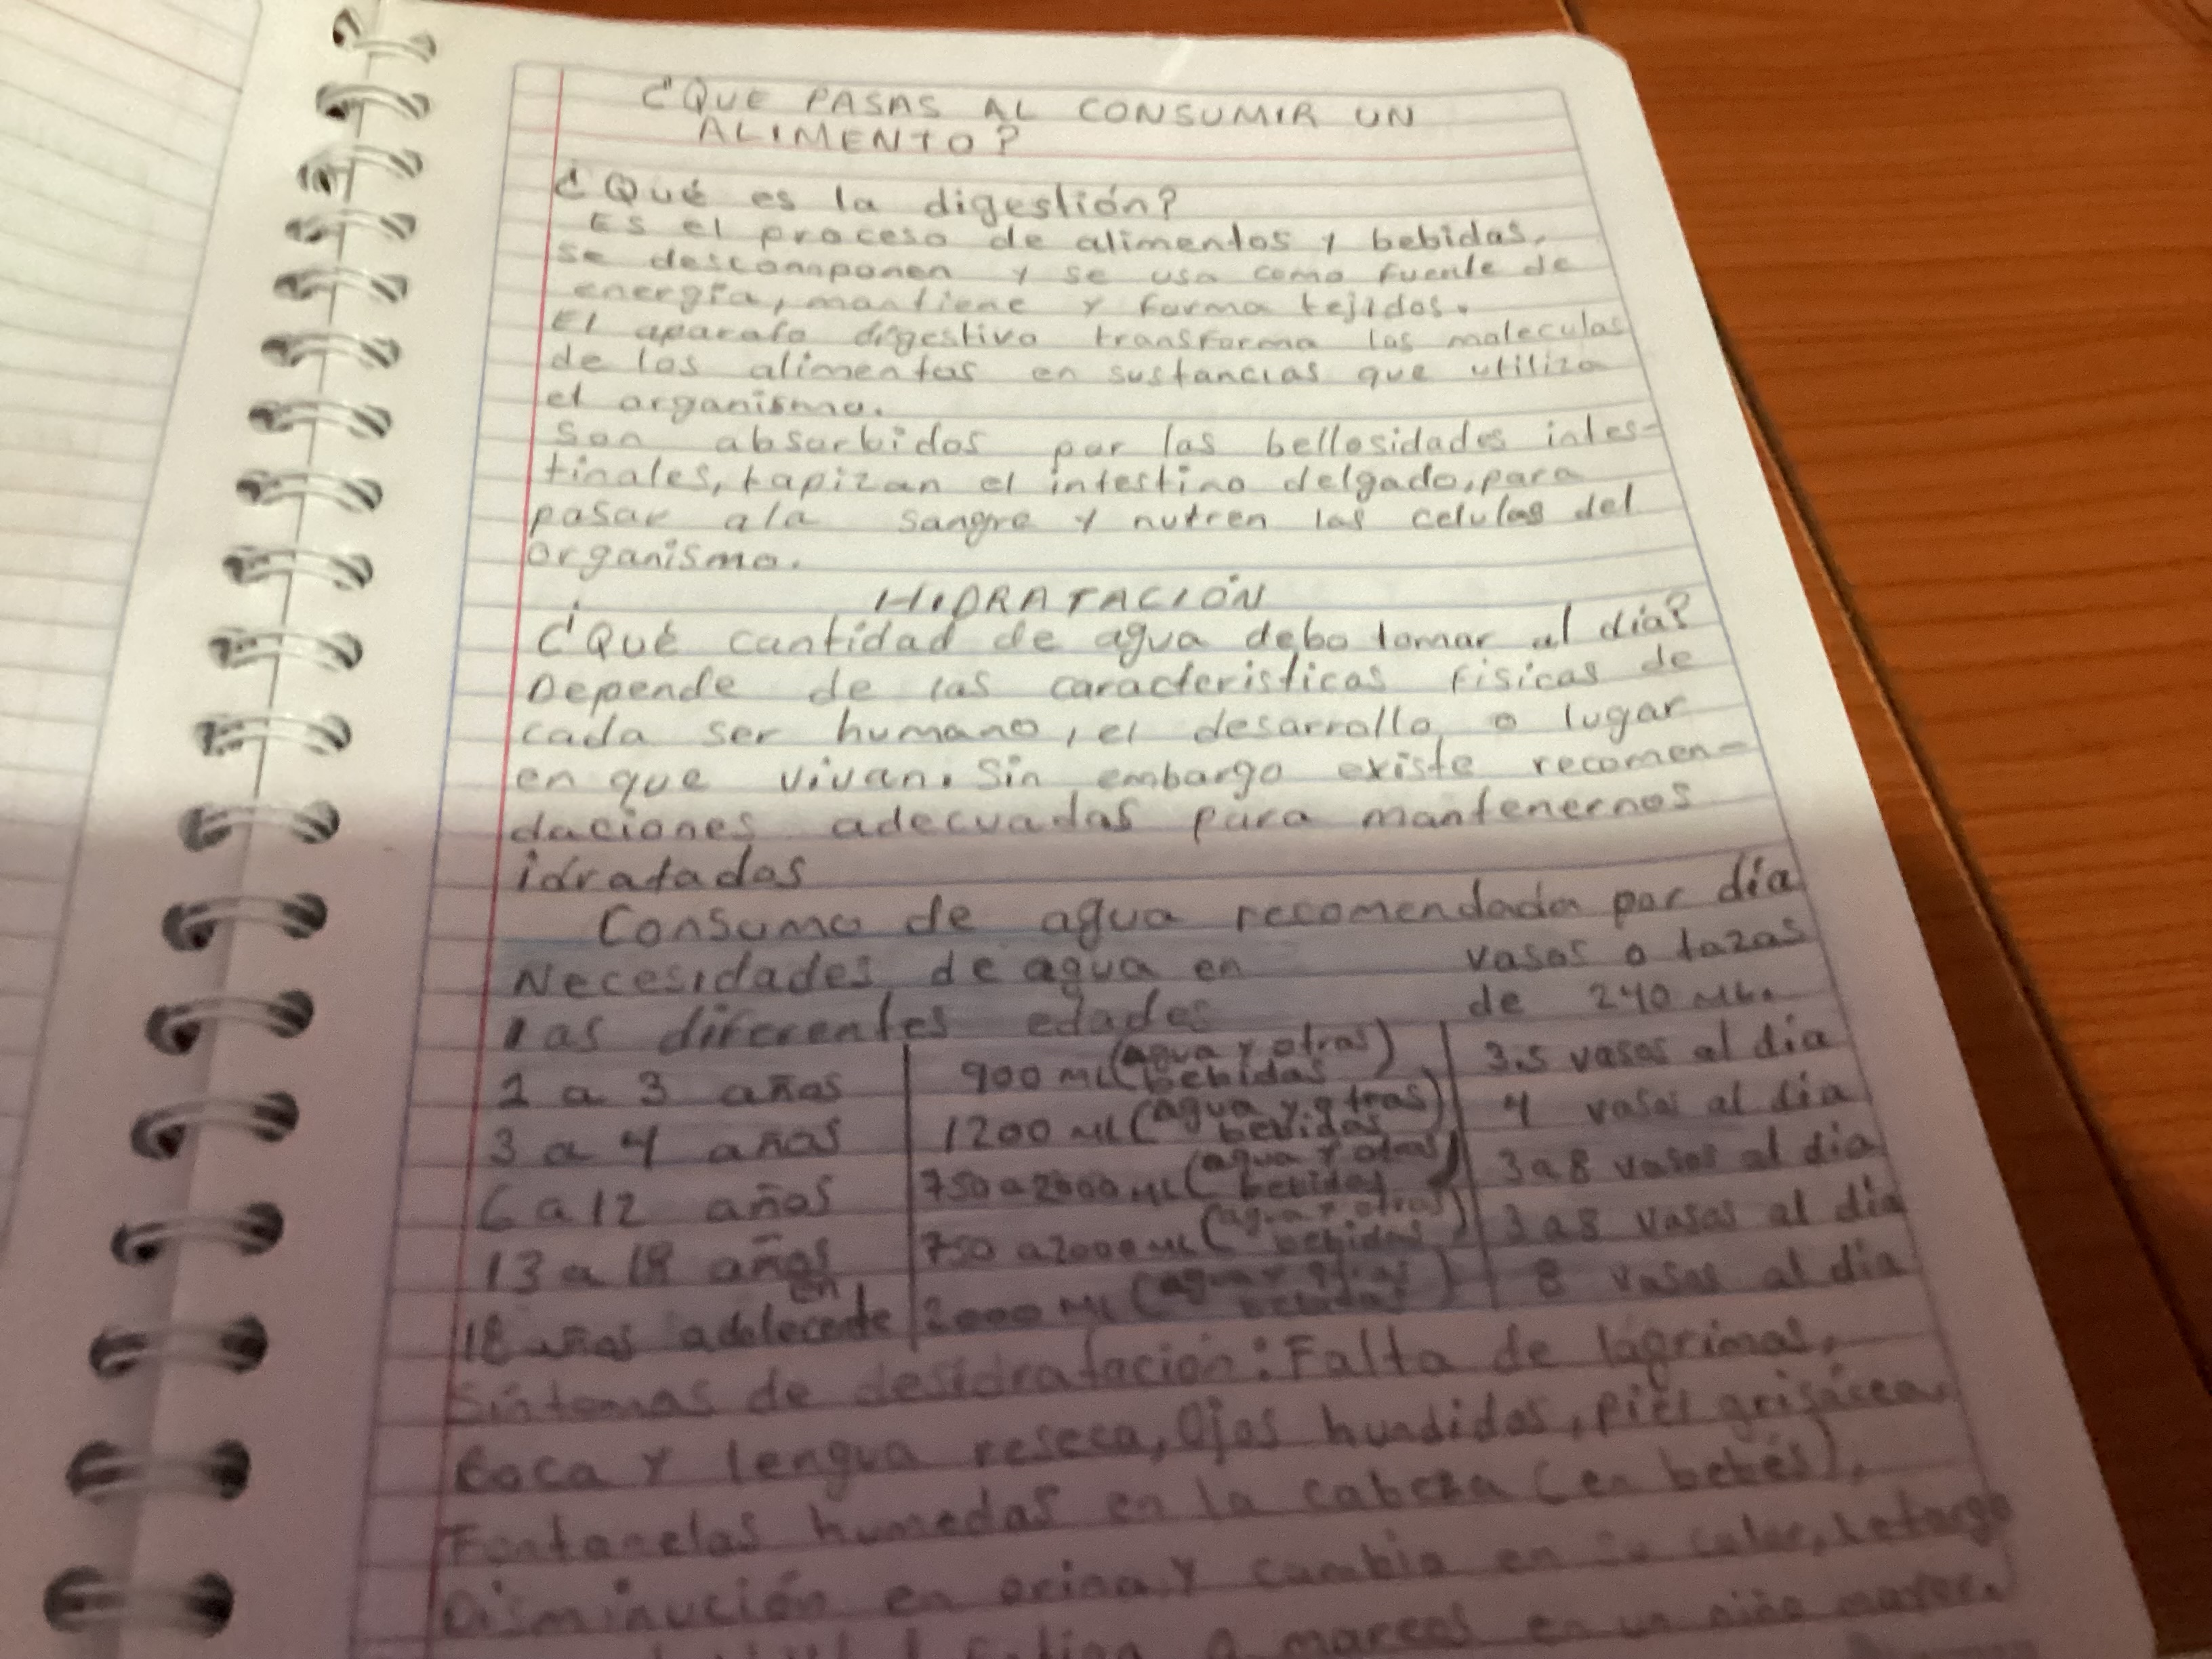 ¿QUE PASAS AL CONSUMIR UN
ALIMENTO?
¿Qué es la digestión?
Es el proceso de alimentos y bebidas,
se descomponen y se usa como fuente de
energía, mantiene y forma tejidos.
El aparato digestivo transforma las moleculas
de los alimentos en sustancias que utiliza
el organismo.
Son absorbidos por las bellosidades intes-
tinales, tapizan el intestino delgado, para
pasar ala sangre y nutren las celulas del
organismo.
HIDRATACIÓN
¿Qué cantidad de agua debo tomar al día?
Depende de las caracteristicas fisicas de
cada ser humano, el desarrollo o lugar
en que vivan. Sin embargo existe recomen-
daciones adecuadas para mantenernos
idratados
Consumo de agua recomendada por día
Necesidades de agua en vasos o tazas
las diferentes edades de 240 ML.
2 a 3 años 900 ML (agua y otras bebidas) 3.5 vasos al día
3 a 4 años 1200 ML (agua y otras bebidas) 4 vasos al día
6 a 12 años 750 a 2000 ML (agua y otras bebidas) 3 a 8 vasos al día
13 a 18 años 750 a 2000 ML (agua y otras bebidas) 3 a 8 vasos al día
18 años en adelecente 2000 ML (agua y otras bebidas) 8 vasos al día
Síntomas de desidratación: Falta de lágrimas,
Boca y lengua reseca, Ojos hundidos, piel grisácea,
Fontanelas humedas en la cabeza (en bebés),
Disminución en orina y cambio en su color, Letargo
o mareos en un niño mayor.